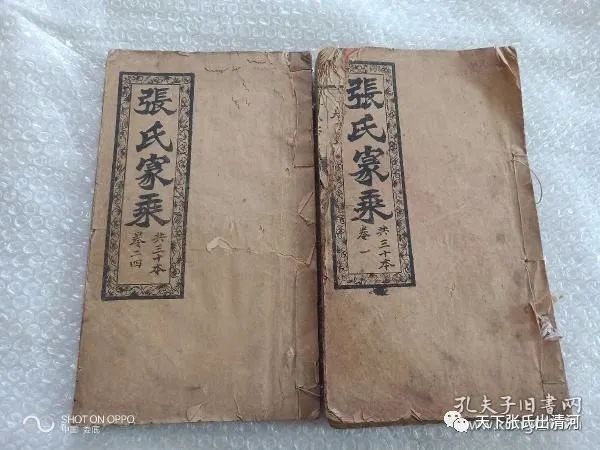 張氏家乘
共三十本
卷二四
張氏家乘
共三十本
卷一
SHOT ON OPPO
中国·娄底
孔夫子旧書网
天下张氏出清河